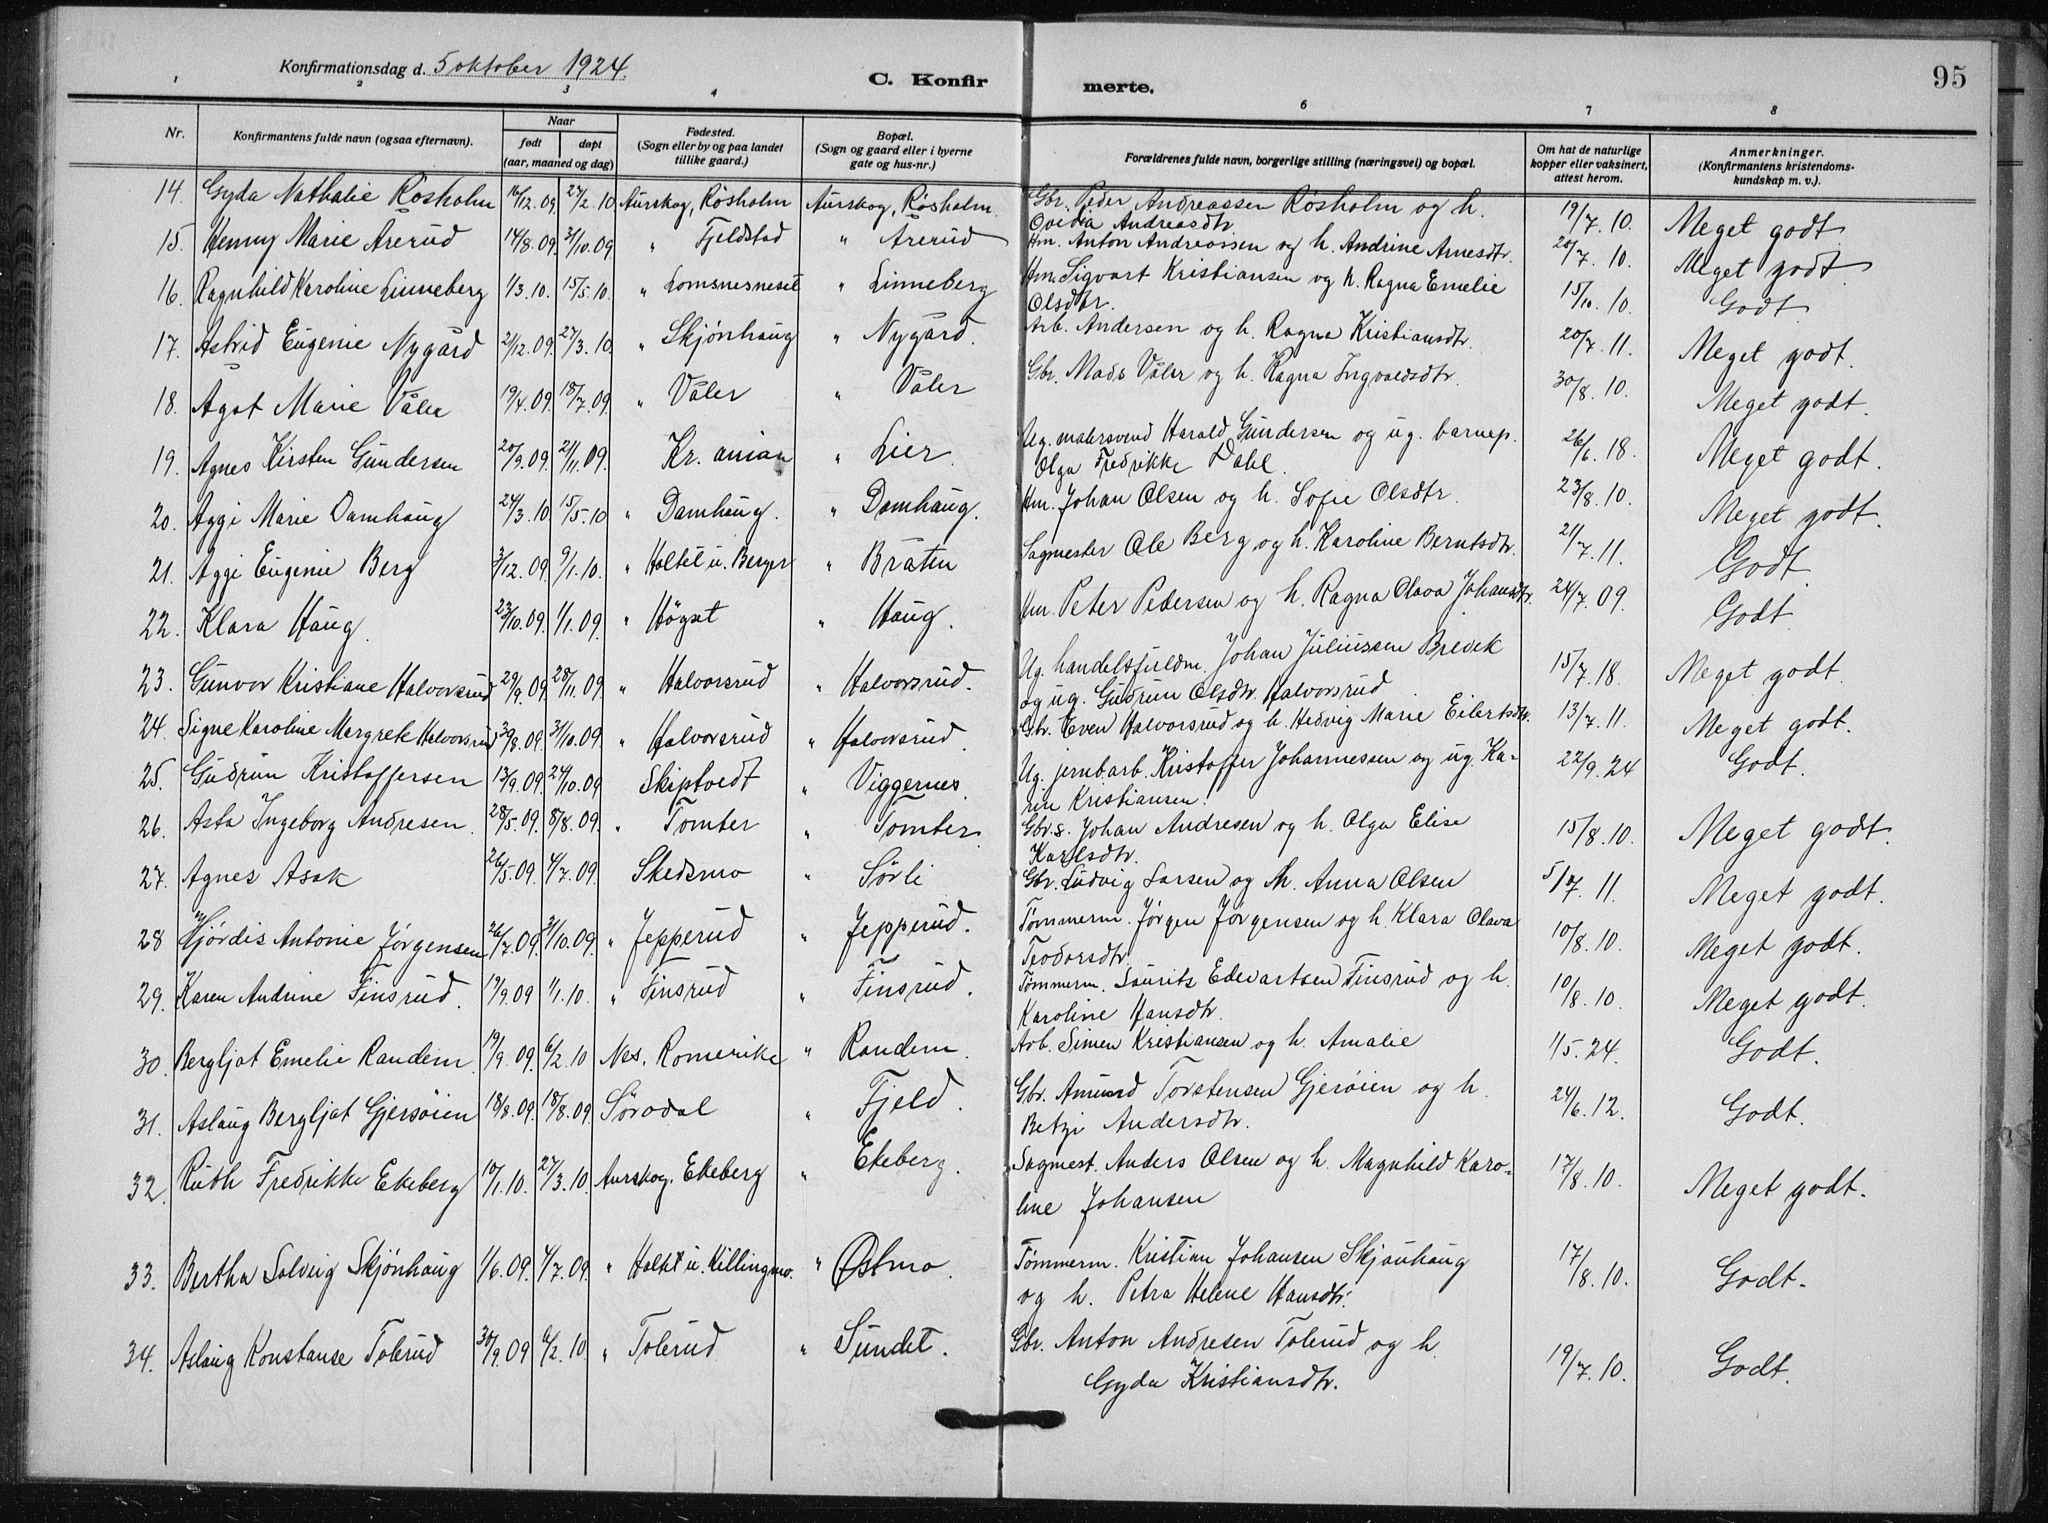 Konfirmationsdag d. 5 oktober 1924.
C. Konfir merte.
95
1 2 3 4 6 7 8
Nr. Konfirmantens fulde navn (ogsaa efternavn). Naar født døpt (aar, maaned og dag) Fødested. (Sogn eller by og paa landet tillike gaard.) Bopæl. (Sogn og gaard eller i byerne gate og hus-nr.) Forældrenes fulde navn, borgerlige stilling (næringsvei) og bopæl. Om hat de naturlige kopper eller vaksinert, attest herom. Anmerkninger. (Konfirmantens kristendoms-kundskap m. v.).
14. Gyda Nathalie Røsholm 16/12.09 27/2.10 Aurskog, Røsholm Aurskog, Røsholm. Gbr. Peder Andreassen Røsholm og h. 19/7.10. Meget godt
Ovidia Andreasdtr.
15. Henny Marie Årerud 14/8.09. 31/10.09 " Fjeldstad " Årerud Hm. Anton Andreassen og h. Andrine Arnesdtr. 20/7.10. Meget godt
16. Ragnhild Karoline Linneberg 1/3.10. 15/5.10. " Lomsnesneset " Linneberg Hm. Sigvart Kristiansen og h. Ragna Emelie 15/10.10. Godt
Olsdtr.
17. Astrid Eugenie Nygård 21/12.09. 27/3.10. " Skjønhaug " Nygård. Arb. Andersen og h. Ragna Kristiansdtr. 20/7.11. Meget godt.
18. Ågot Marie Våler 19/4.09. 18/7.09. " Våler " Våler Gbr. Mads Våler og h. Ragna Ingvaldsdtr. 30/8.10. Meget godt.
19. Agnes Kirsten Gundersen 20/9.09. 21/11.09. Kr. anian " Lier. Ug. malersvend Harald Gundersen og ug. barnep. 26/6.18. Meget godt.
Olga Fredrikke Dahl.
20. Aggi Marie Damhaug 24/3.10. 15/5.10 " Damhaug. " Damhaug. Hm. Johan Olsen og h. Sofie Olsdtr. 23/8.10. Meget godt.
21. Aggi Eugenie Berg 3/12.09. 9/1.10. " Holtet u. Berger " Bråten Sagmester Ole Berg og h. Karoline Berntsdtr. 21/7.11. Godt.
22. Klara Haug. 23/10.09. 1/1.09. " Høgset " Haug. Hm. Peter Pedersen og h. Ragna Olava Johansdtr. 24/7.09. Godt.
23. Gunvor Kristiane Halvorsrud 29/9.09. 28/11.09. " Halvorsrud " Halvorsrud. Ug. handelsfuldm. Johan Juliussen Brevek 15/7.18. Meget godt.
og ug. Gudrun Olsdtr. Halvorsrud
24. Signe Karoline Margrete Halvorsrud 30/8.09. 31/10.09. " Halvorsrud " Halvorsrud. Gbr. Even Halvorsrud og h. Hedvig Marie Eilertsdtr. 13/7.11. Meget godt.
25. Gudrun Kristoffersen 13/9.09. 24/10.09 Skiptvedt " Viggernes. Ug. jernb.arb. Kristoffer Johannessen og ug. Ka- 22/9.24 Godt.
ren Kristiansen.
26. Asta Ingeborg Andresen. 28/5.09. 8/8.09. " Tomter " Tomter. Gbr.s. Johan Andresen og h. Olga Elise 15/8.10. Meget godt.
Karlsdtr.
27. Agnes Asak 26/5.09. 4/7.09. Skedsmo " Sørli Gbr. Ludvig Larsen og h. Anna Olsen 5/7.11. Meget godt.
28 Hjørdis Antonie Jørgensen 26/7.09. 31/10.09. " Jepperud " Jepperud. Tømmerm. Jørgen Jørgensen og h. Klara Olava 10/8.10. Meget godt.
Teodorsdtr.
29. Karen Andrine Finsrud. 19/9.09 1/1.10. " Finsrud " Finsrud. Tømmerm. Laurits Edvartsen Finsrud og h. 10/8.10. Meget godt.
Karoline Hansdtr.
30. Bergljot Emelie Randem. 19/9.09. 6/2.10 Nes, Romerike " Randem. Arb. Simen Kristiansen og h. Amalie 1/5.24. Godt.
31. Aslaug Bergljot Gjersøien 18/8.09. 18/8.09. Sørodal " Fjeld. Gbr. Amund Torstensen Gjerøien og h. 24/6.12. Godt.
Betzi Andersdtr.
32. Ruth Fredrikke Ekeberg 10/1.10. 27/3.10. Aurskog. Ekeberg " Ekeberg. Sagmest. Anders Olsen og h. Magnhild Karo- 17/8.10. Meget godt.
line Johansen
33. Bertha Solveig Skjønhaug 1/6.09. 4/7.09. " Holtet u. Killingmo. " Østmo. Tømmerm. Kristian Johansen Skjønhaug 17/8.10. Godt.
og h. Petra Helene Hansdtr.
34. Aslaug Konstanse Tolerud 30/9.09 6/2.10. " Tolerud " Sundet. Gbr. Anton Andresen Tolerud og h. 19/7.10. Godt.
Gyda Kristiansdtr.